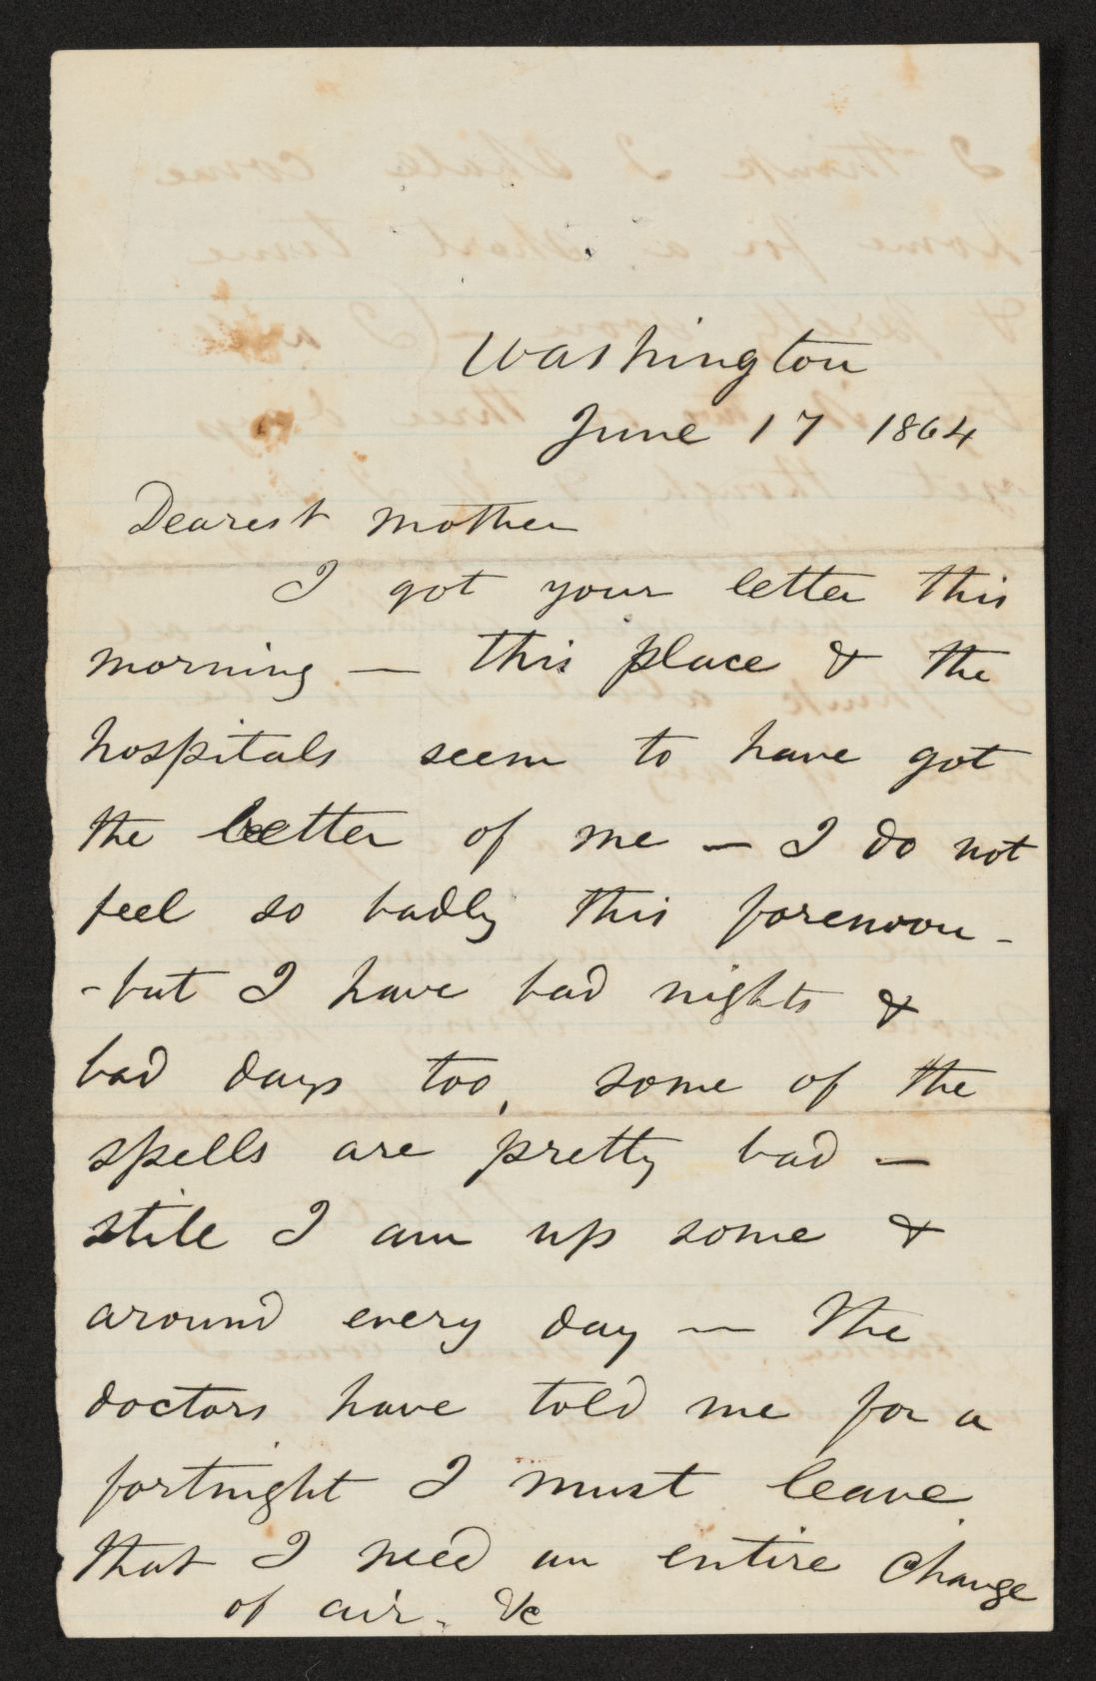 Washington
June 17 1864
Dearest mother
I got your letter this
morning — this place & the
hospitals seem to have got
the better of me — I do not
feel so badly this forenoon -
- but I have bad nights &
bad days too, some of the
spells are pretty bad —
still I am up some &
around every day — The
doctors have told me for a
fortnight I must leave
that I need an entire change
of air. &c